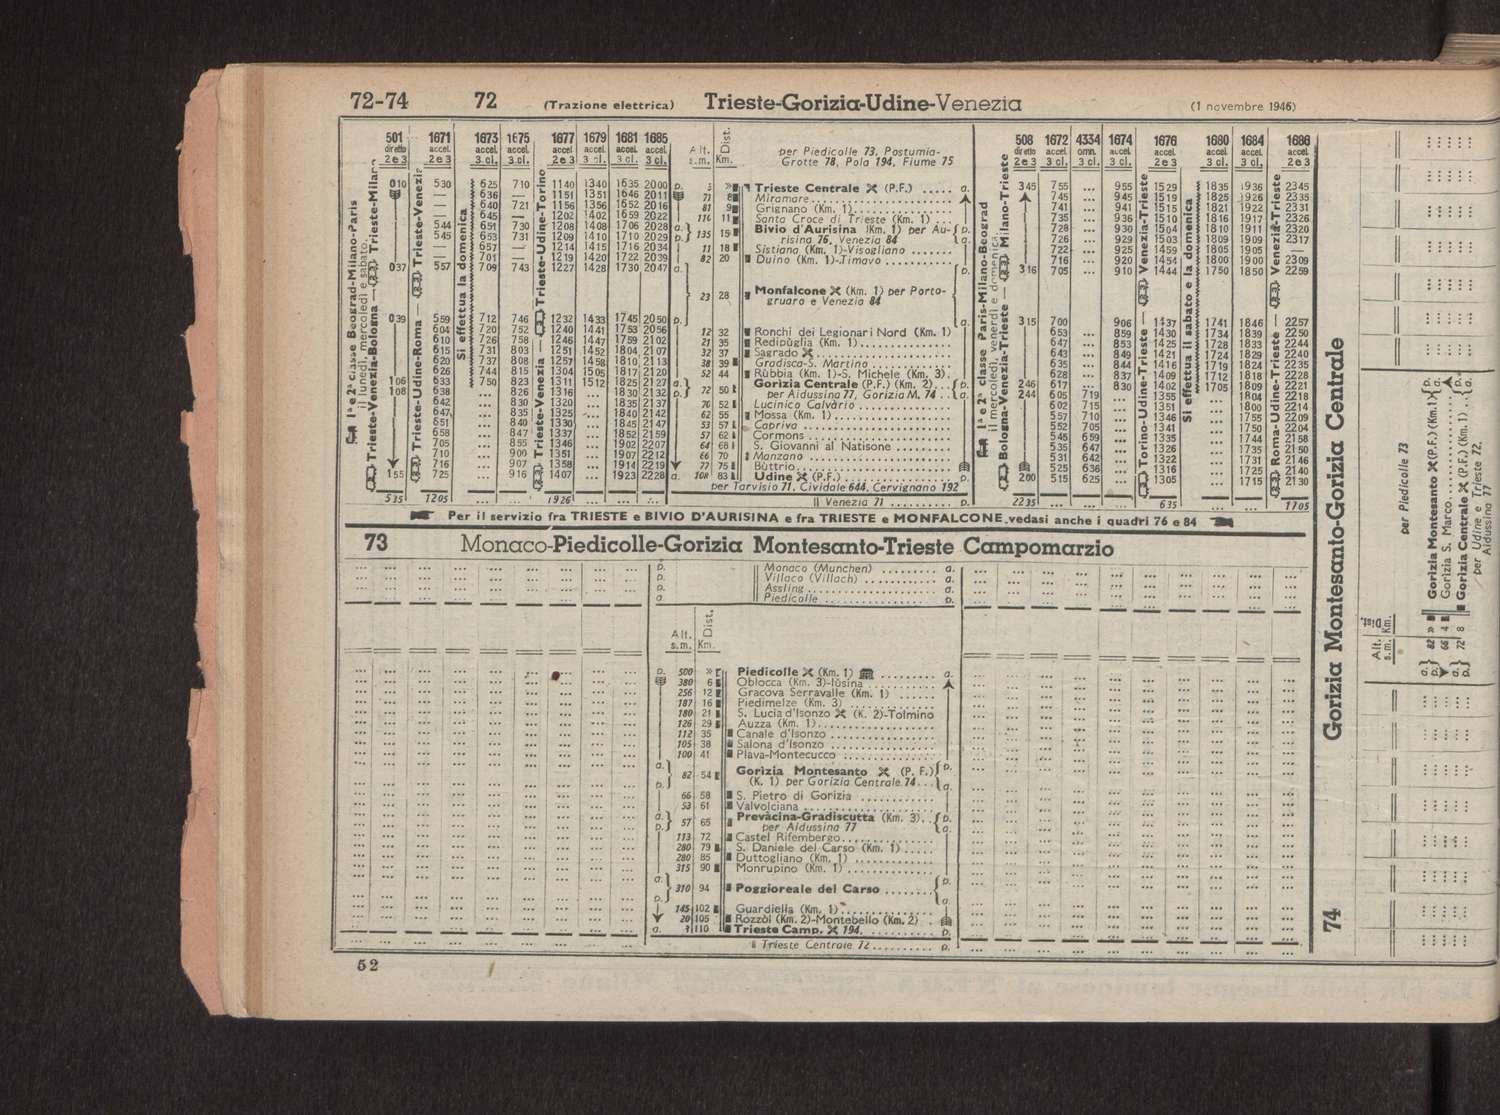 72-74 72 (Trazione elettrica) Trieste-Gorizia-Udine-Venezia (1 novembre 1946)
501 1671 1673 1675 1677 1679 1681 1685
diretto accel. accel. accel. accel. accel. accel. accel.
2e3 2e3 3 cl. 3 cl. 2e3 3 cl. 3 cl. 3 cl.
Alt. s.m. Dist. Km.
per Piedicolle 73, Postumia-
Grotte 78, Pola 194, Fiume 75
508 1672 4334 1674 1676 1680 1684 1686
diretto accel. omn. accel. accel. accel. accel. accel.
2e3 3 cl. 3 cl. 3 cl. 2e3 3 cl. 3 cl. 2e3
1ª e 2ª classe Beograd-Milano-Paris
il lunedì mercoledì e sabato.
Trieste-Venezia-Bologna — Trieste-Milano
Trieste-Udine-Roma — Trieste-Venezia
Si effettua la domenica
Trieste-Venezia. — Trieste-Udine-Torino
1ª e 2ª classe Paris-Milano-Beograd
il mercoledì, venerdì e domenica.
Bologna-Venezia-Trieste — Milano-Trieste
Torino-Udine-Trieste — Venezia-Trieste
Si effettua il sabato e la domenica
Roma-Udine-Trieste — Venezia-Trieste
010 530 625 710 1140 1340 1635 2000 p. Trieste Centrale (P.F.) ..... a. 345 755 ... 955 1529 1835 1936 2345
— 636 — 1151 1351 1646 2011 71 8 Miramare 745 ... 945 1519 1825 1926 2335
— 640 721 1156 1356 1652 2016 81 9 Grignano (Km. 1) 741 ... 941 1515 1821 1922 2331
— 645 — 1202 1402 1659 2022 11 Santa Croce di Trieste (Km. 1) ... 735 ... 936 1510 1816 1917 2326
544 651 730 1208 1408 1706 2028 a. 135 15 Bivio d'Aurisina (Km. 1) per Au- p. 728 ... 930 1504 1810 1911 2320
545 653 731 1209 1410 1710 2029 p. risina 76, Venezia 84 a. 726 ... 929 1503 1809 1909 2317
— 657 — 1214 1415 1716 2034 11 18 Sistiana (Km. 1)-Visogliano ....... 722 ... 925 1459 1805 1905 —
— 701 — 1219 1420 1722 2039 82 20 Duino (Km. 1)-Timavo 716 ... 920 1454 1800 1900 2309
037 557 709 743 1227 1428 1730 2047 a. p. 316 705 ... 910 1444 1750 1850 2259
23 28 Monfalcone (Km. 1) per Porto-
gruaro e Venezia 84
039 559 712 746 1232 1433 1745 2050 p. a. 315 700 ... 906 1437 1741 1846 2257
604 720 752 1240 1441 1753 2056 12 32 Ronchi dei Legionari Nord (Km. 1) 653 ... 859 1430 1734 1839 2250
610 726 758 1246 1447 1759 2102 21 35 Redipùglia (Km. 1) 647 ... 853 1425 1728 1833 2244
615 731 803 1251 1452 1804 2107 32 37 Sagrado 643 ... 849 1421 1724 1829 2240
620 737 808 1257 1458 1810 2113 38 39 Gradisca-S. Martino 635 ... 844 1416 1719 1824 2235
626 744 815 1304 1505 1817 2120 52 44 Rùbbia (Km. 1)-S. Michele (Km. 3). 628 ... 837 1409 1712 1818 2228
106 633 750 823 1311 1512 1825 2127 a. 72 50 Gorizia Centrale (P.F.) (Km. 2) p. 246 617 ... 830 1402 1705 1809 2221
108 638 ... 826 1316 ... 1830 2132 p. per Aidussina 77, Gorizia M. 74 a. 244 605 719 1355 ... 1804 2218
642 ... 830 1320 ... 1835 2137 76 52 Lucinico Calvàrio 602 715 1351 ... 1800 2214
647 ... 835 1325 ... 1840 2142 62 55 Mossa (Km. 1) 557 710 1346 ... 1755 2209
651 ... 840 1330 ... 1845 2147 53 57 Capriva 552 705 1341 ... 1750 2204
658 ... 847 1337 ... 1852 2159 57 62 Cormons 546 659 1335 ... 1744 2158
705 ... 855 1346 ... 1902 2207 64 68 S. Giovanni al Natisone 535 647 1326 ... 1735 2150
710 ... 900 1351 ... 1907 2212 66 70 Manzano 531 642 1322 ... 1731 2146
716 ... 907 1358 ... 1914 2219 77 75 Bùttrio 525 636 1316 ... 1725 2140
155 725 ... 916 1407 ... 1923 2228 a. 108 83 Udine (P.F.) p. 200 515 625 1305 ... 1715 2130
per Tarvisio 71, Cividale 644, Cervignano 192
535 1205 ... ... 1926 ... ... ... Venezia 71 ......... p. 2235 ... ... ... 635 ... ... 1705
Per il servizio fra TRIESTE e BIVIO D'AURISINA e fra TRIESTE e MONFALCONE vedasi anche i quadri 76 e 84
73 Monaco-Piedicolle-Gorizia Montesanto-Trieste Campomarzio
p. Monaco (Munchen) ......... a.
p. Villaco (Villach) ............ a.
p. Assling a.
a. Piedicolle p.
Alt. s.m. Dist. Km.
p. 500 » Piedicolle (Km. 1) a.
380 6 Oblocca (Km. 3)-Iùsina
256 12 Gracova Serravalle (Km. 1)
187 16 Piedimelze (Km. 3)
180 21 S. Lucia d'Isonzo (K. 2)-Tolmino
126 29 Auzza (Km. 1)
112 35 Canale d'Isonzo
105 38 Salona d'Isonzo
100 41 Plava-Montecucco
a. 82 54 Gorizia Montesanto (P. F.) p.
p. (K. 1) per Gorizia Centrale 74... a.
66 58 S. Pietro di Gorizia
53 61 Valvolciana
a. 57 65 Prevàcina-Gradiscutta (Km. 3).. p.
p. per Aidussina 77 a.
113 72 Castel Rifembergo
280 79 S. Daniele del Carso (Km. 1)
280 85 Duttogliano (Km. 1)
315 90 Monrupino (Km. 1)
a. p. 310 94 Poggioreale del Carso p. a.
145 102 Guardiella (Km. 1)
20 105 Rozzòl (Km. 2)-Montebello (Km. 2)
a. 110 Trieste Camp. 194 p.
Trieste Centrale 72 p.
52
74 Gorizia Montesanto-Gorizia Centrale
Alt. s.m. Dist. Km.
per Piedicolle 73
a. p. 82 » Gorizia Montesanto (P.F.) (Km. 1) p. a.
66 4 Gorizia S. Marco
a. p. 72 8 Gorizia Centrale (P.F.) (Km. 1) p. a.
per Udine e Trieste 72,
Aidussina 77